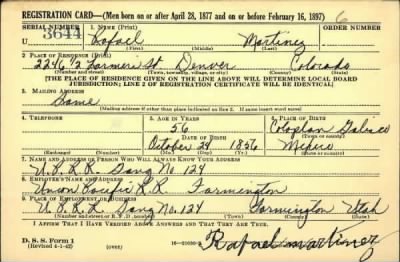 REGISTRATION CARD—(Men born on or after April 28, 1877 and on or before February 16, 1897) 6
SERIAL NUMBER 1. NAME (Print) ORDER NUMBER
3644 Rafael Martinez
(First) (Middle) (Last)
2. PLACE OF RESIDENCE (Print)
2246 1/2 Larimer St Denver Colorado
(Number and street) (Town, township, village, or city) (County) (State)
[THE PLACE OF RESIDENCE GIVEN ON THE LINE ABOVE WILL DETERMINE LOCAL BOARD
JURISDICTION; LINE 2 OF REGISTRATION CERTIFICATE WILL BE IDENTICAL]
3. MAILING ADDRESS
Same
[Mailing address if other than place indicated on line 2. If same insert word same]
4. TELEPHONE 5. AGE IN YEARS 6. PLACE OF BIRTH
56
DATE OF BIRTH (Town or county)
October 24 1886 Mexico
(Mo.) (Day) (Yr.) (State or country)
7. NAME AND ADDRESS OF PERSON WHO WILL ALWAYS KNOW YOUR ADDRESS
U.P.R.R. Gang No 124
8. EMPLOYER'S NAME AND ADDRESS
Union Pacific R.R. Farmington
9. PLACE OF EMPLOYMENT OR BUSINESS
U.P.R.R. Gang No. 124 Farmington Utah
(Number and street or R. F. D. number) (Town) (County) (State)
I AFFIRM THAT I HAVE VERIFIED ABOVE ANSWERS AND THAT THEY ARE TRUE.
D. S. S. Form 1
(Revised 4-1-42) (over) Rafael martinez